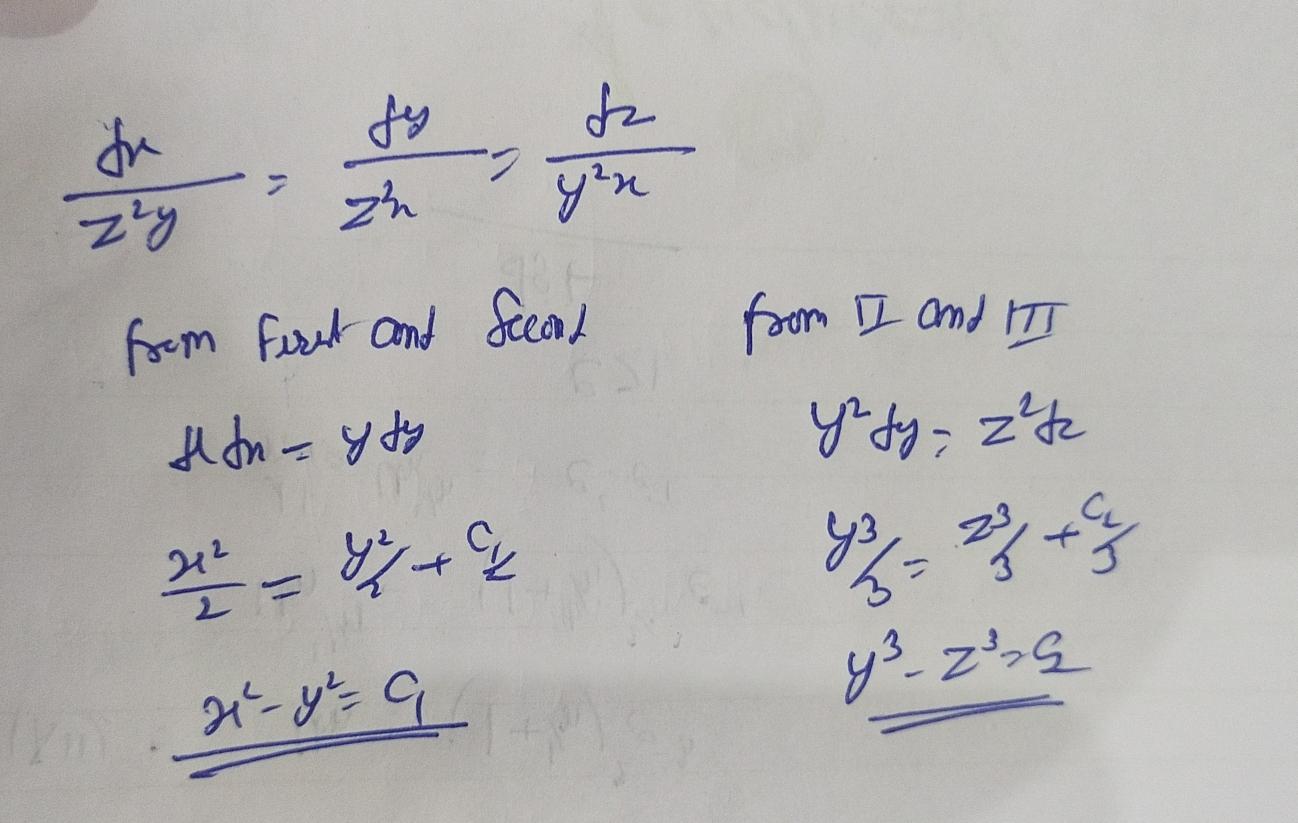 dx/z²y = dy/z²x = dz/y²x
from First and Second
x dx = y dy
x²/2 = y²/2 + C₁/2
x² - y² = C₁
from II and III
y² dy = z² dz
y³/3 = z³/3 + C₂/3
y³ - z³ = C₂